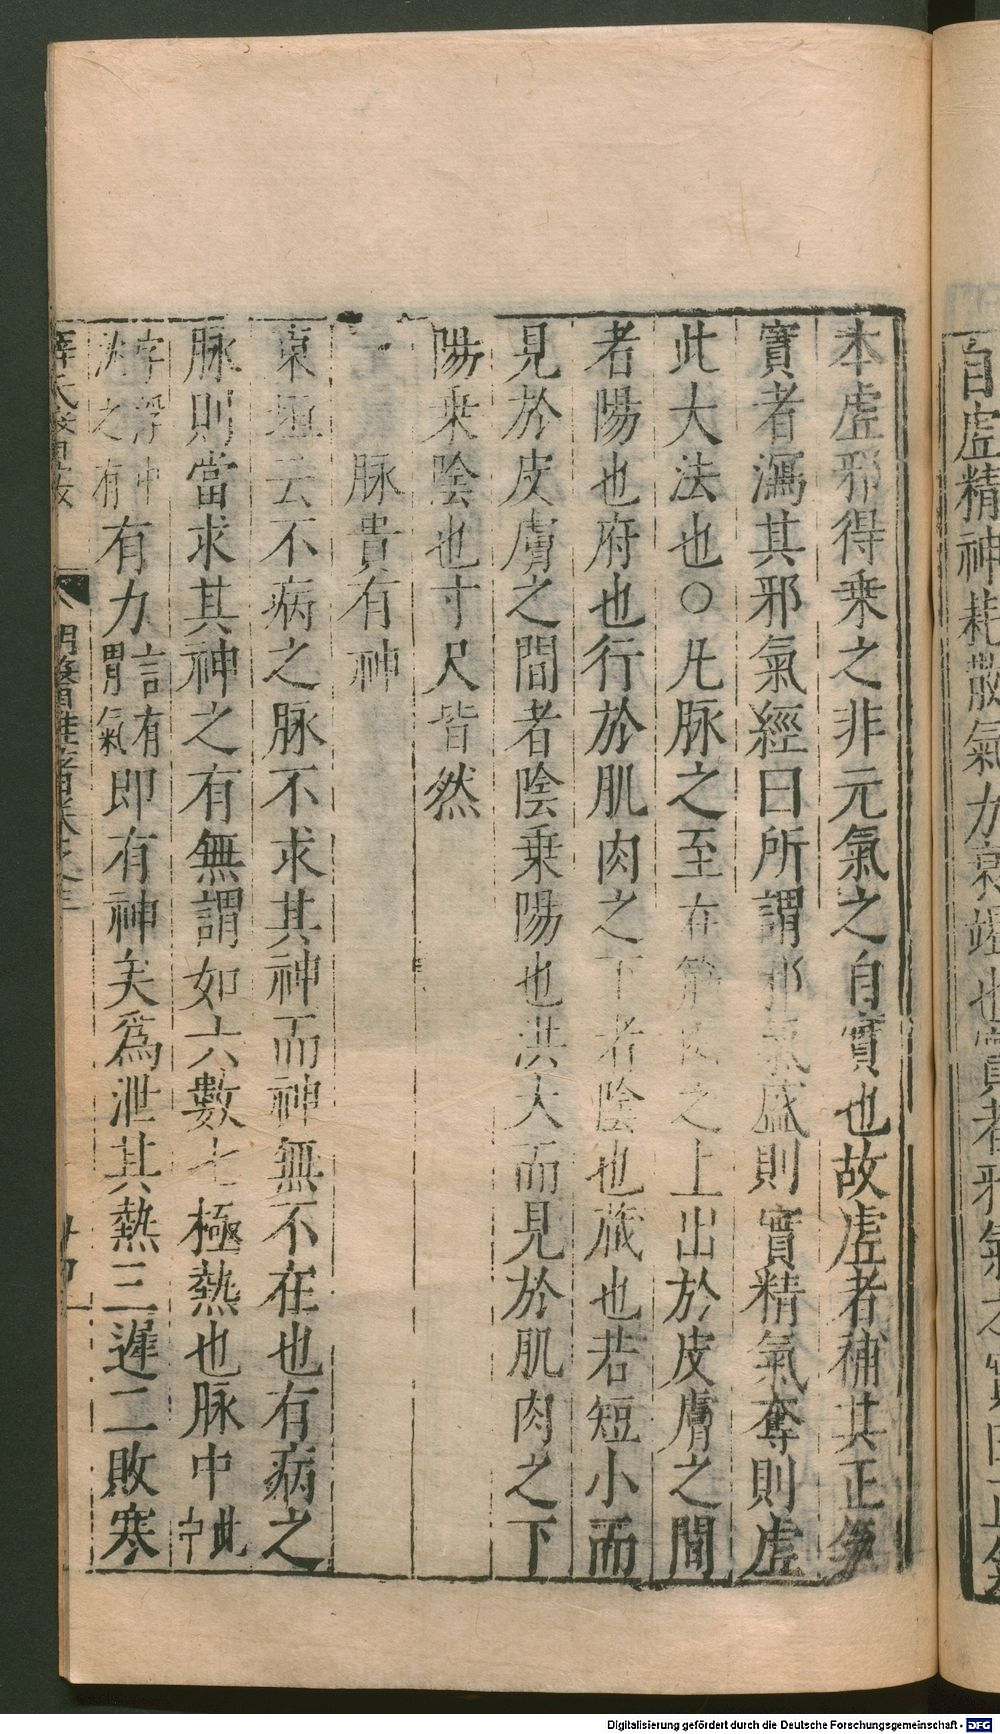 自虛精神耗散氣力衰竭也實者邪氣
本虛邪得乗之非元氣之自實也故虛者補其正
實者瀉其邪氣經曰所謂邪氣盛則實精氣奪則虛
此大法也○凡脉之至在筋肉之上出於皮膚之間
者陽也府也行於肌肉之下者陰也藏也若短小而
見於皮膚之間者陰乗陽也洪大而見於肌肉之下
陽乗陰也寸尺皆然
脉貴有神
東垣云不病之脉不求其神而神無不在也有病之
脉則當求其神之有無謂如六數七極熱也脉中此中
字浮中沈之有有力言有胃氣即有神矣爲泄其熱三遲二敗寒
薛氏醫案 明醫雜著卷之三
Digitalisierung gefördert durch die Deutsche Forschungsgemeinschaft - DFG